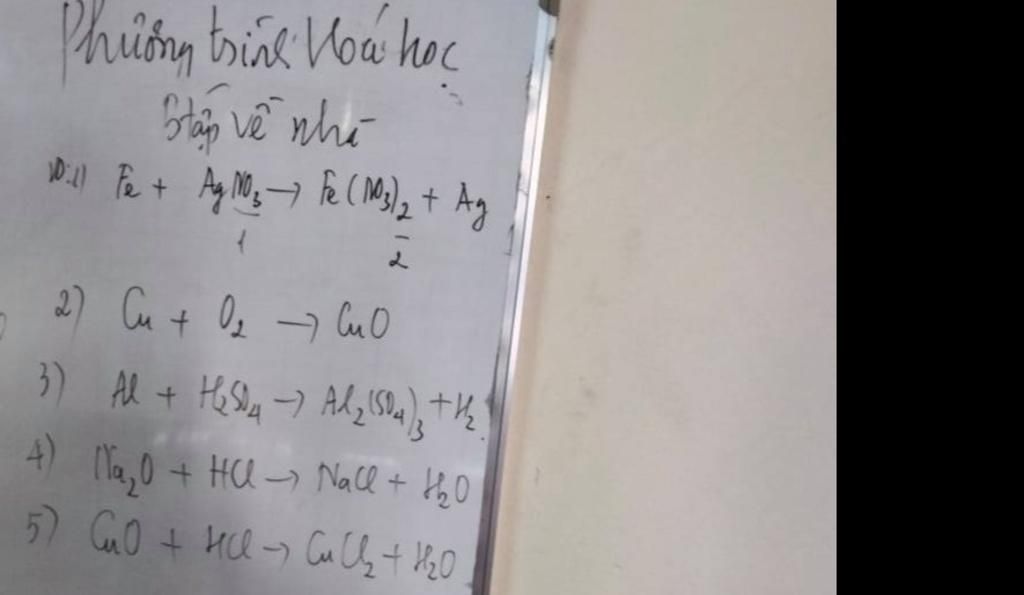 Phương trình Hoá học
Btập về nhà
VD:1) Fe + AgNO₃ → Fe(NO₃)₂ + Ag
1 2
2) Cu + O₂ → CuO
3) Al + H₂SO₄ → Al₂(SO₄)₃ + H₂
4) Na₂O + HCl → NaCl + H₂O
5) CuO + HCl → CuCl₂ + H₂O